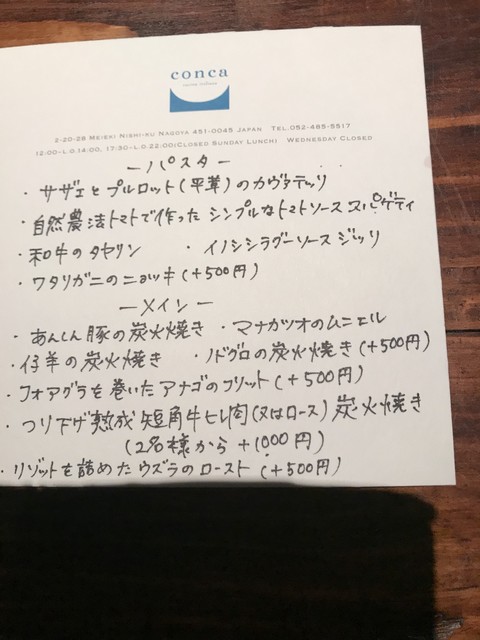 conca
2-20-28 MEIEKI NISHI-KU NAGOYA 451-0045 JAPAN TEL.052-485-5517
12:00-L.O.14:00, 17:30-L.O.22:00(CLOSED SUNDAY LUNCH) WEDNESDAY CLOSED
ーパスターー
・サザエとプルロット(平茸)のカヴァテッリ
・自然農法トマトで作ったシンプルなトマトソース スパゲティ
・和牛のタヤリン ・イノシシラグーソース ジッリ
・ワタリガニのニョッキ(+500円)
ーメインー
・あんしん豚の炭火焼き ・マナカツオのムニエル
・仔羊の炭火焼き ・ノドグロの炭火焼き(+500円)
・フォアグラを巻いたアナゴのフリット(+500円)
・つり下げ熟成短角牛ヒレ肉(又はロース)炭火焼き
(2名様から+1000円)
・リゾットを詰めたウズラのロースト(+500円)